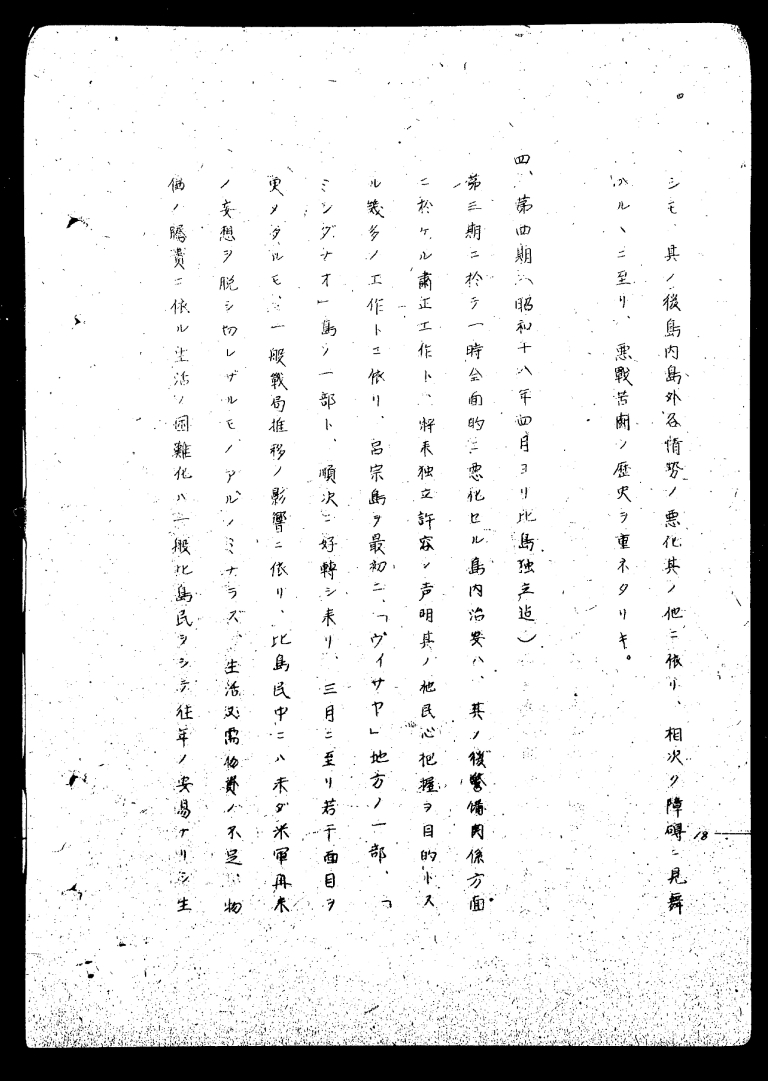 シモ、其ノ後島内島外各情勢ノ悪化其ノ他ニ依リ、相次グ障碍ニ見舞
ハルヽニ至リ、悪戦苦闘ノ歴史ヲ重ネタリキ。
四、第四期（昭和十八年四月ヨリ比島独立迄）
第三期ニ於テ一時全面的ニ悪化セル島内治安ハ、其ノ後警備関係方面
ニ於ケル粛正工作ト、将来独立許容ノ声明其ノ他民心把握ヲ目的トス
ル幾多ノ工作トニ依リ、呂宗島ヲ最初ニ、「ヴイサヤ」地方ノ一部、「
ミンダナオ」島ノ一部ト、順次ニ好轉シ来リ、三月ニ至リ若干面目ヲ
更メタルモ、一般戦局推移ノ影響ニ依リ、比島民中ニハ未ダ米軍再来
ノ妄想ヲ脱シ切レザルモノアルノミナラズ、生活必需物資ノ不足、物
価ノ騰貴ニ依ル生活ノ困難化ハ一般比島民ヲシテ往年ノ安易ナリシ生
四
18